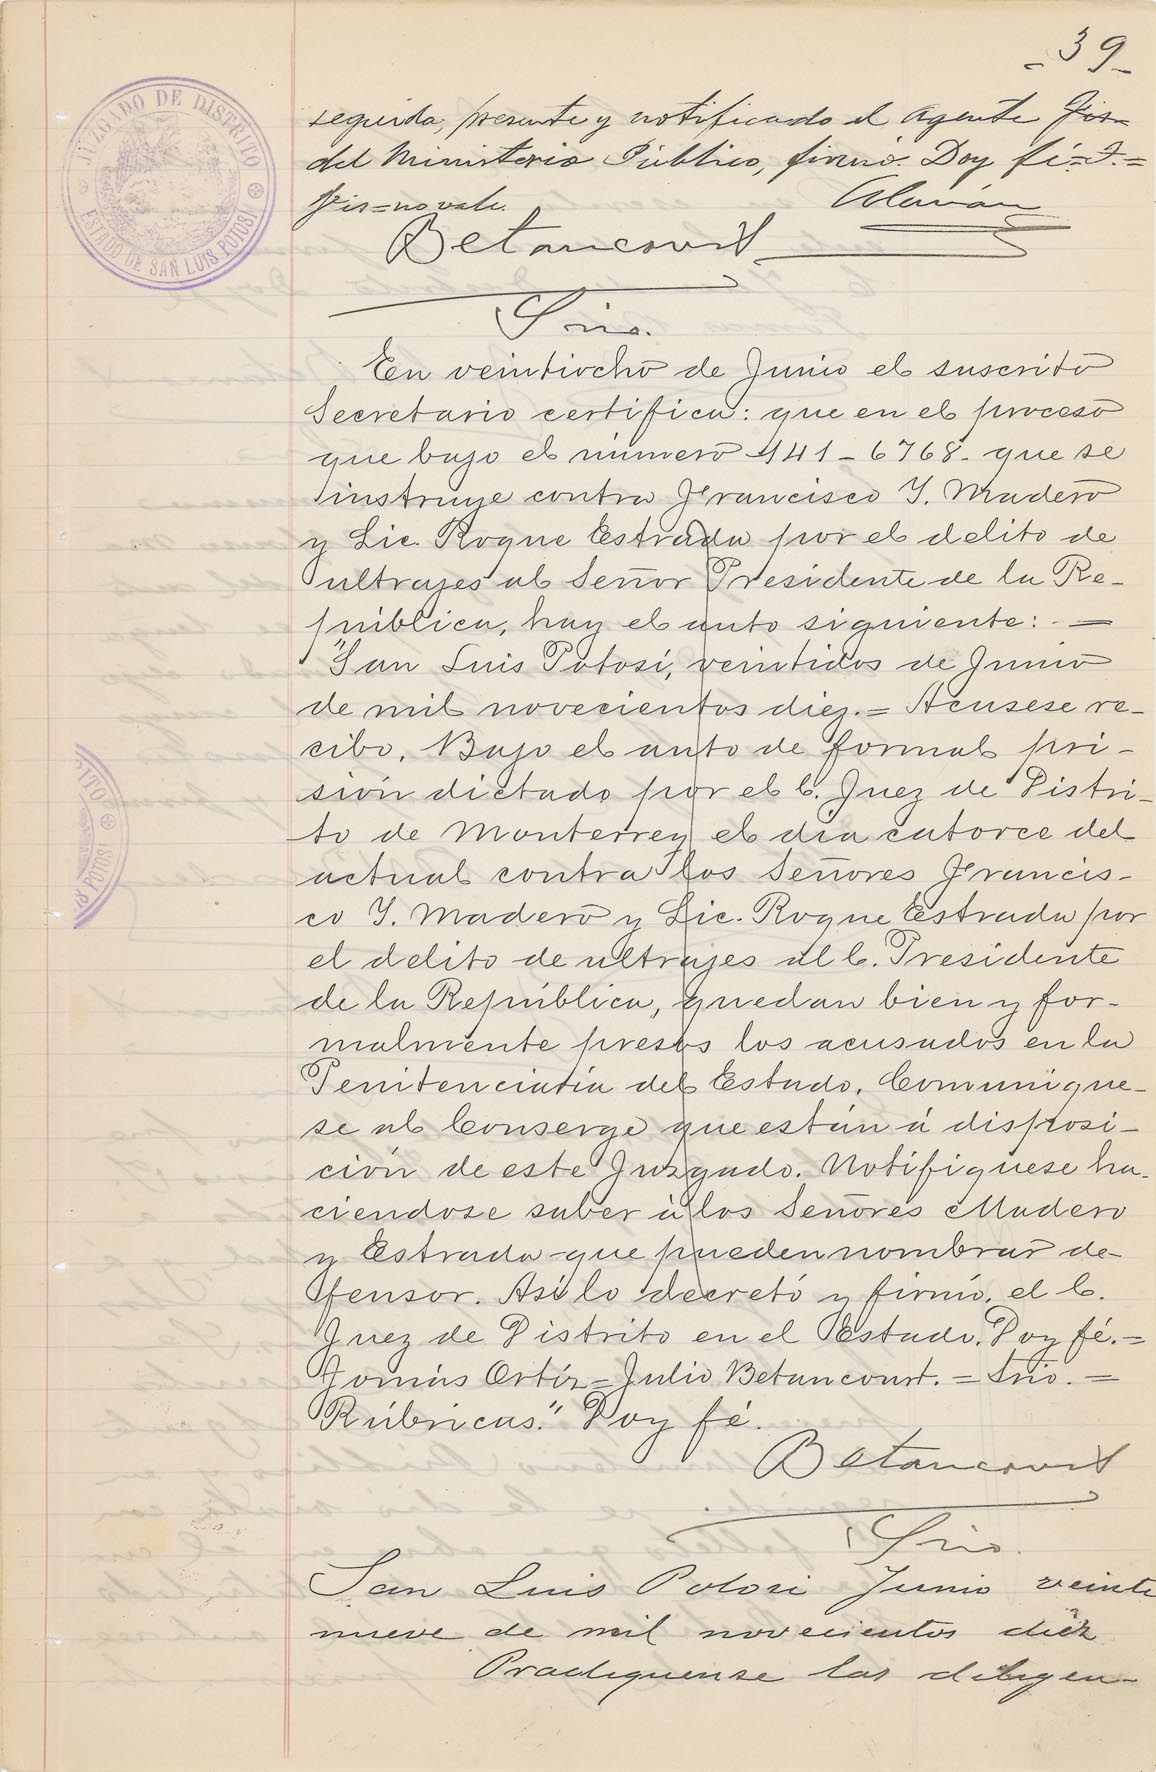 - 39 -
JUZGADO DE DISTRITO
ESTADO DE SAN LUIS POTOSI
seguida, presente y notificado el Agente Fis-
del Ministerio Público, firmó. Doy fé=T.=
fis=no vale.
Alemán
Betancourt
Srio.
En veintiocho de Junio el suscrito
Secretario certifica: que en el proceso
que bajo el número 141-6768- que se
instruye contra Francisco Y. Madero
y Lic. Roque Estrada por el delito de
ultrajes al Señor Presidente de la Re-
pública, hay el auto siguiente: - =
"San Luis Potosí, veintidos de Junio
de mil novecientos diez.= Acusese re-
cibo. Bajo el auto de formal pri-
sión dictado por el C. Juez de Distri-
to de Monterrey el día catorce del
actual contra los Señores Francis-
co Y. Madero y Lic. Roque Estrada por
el delito de ultrajes al C. Presidente
de la República, quedan bien y for-
malmente presos los acusados en la
Penitenciaría del Estado. Comunique-
se al Conserge que están á disposi-
ción de este Juzgado. Notifiquese ha-
ciendose saber á los Señores Madero
y Estrada que pueden nombrar de-
fensor. Así lo decretó y firmó, el C.
Juez de Distrito en el Estado. Doy fé.=
Tomás Ortíz=Julio Betancourt.=Srio.=
Rúbricas." Doy fé.
Betancourt
Srio.
San Luis Potosí Junio veinte
nueve de mil novecientos diez
Practiquense las diligen-